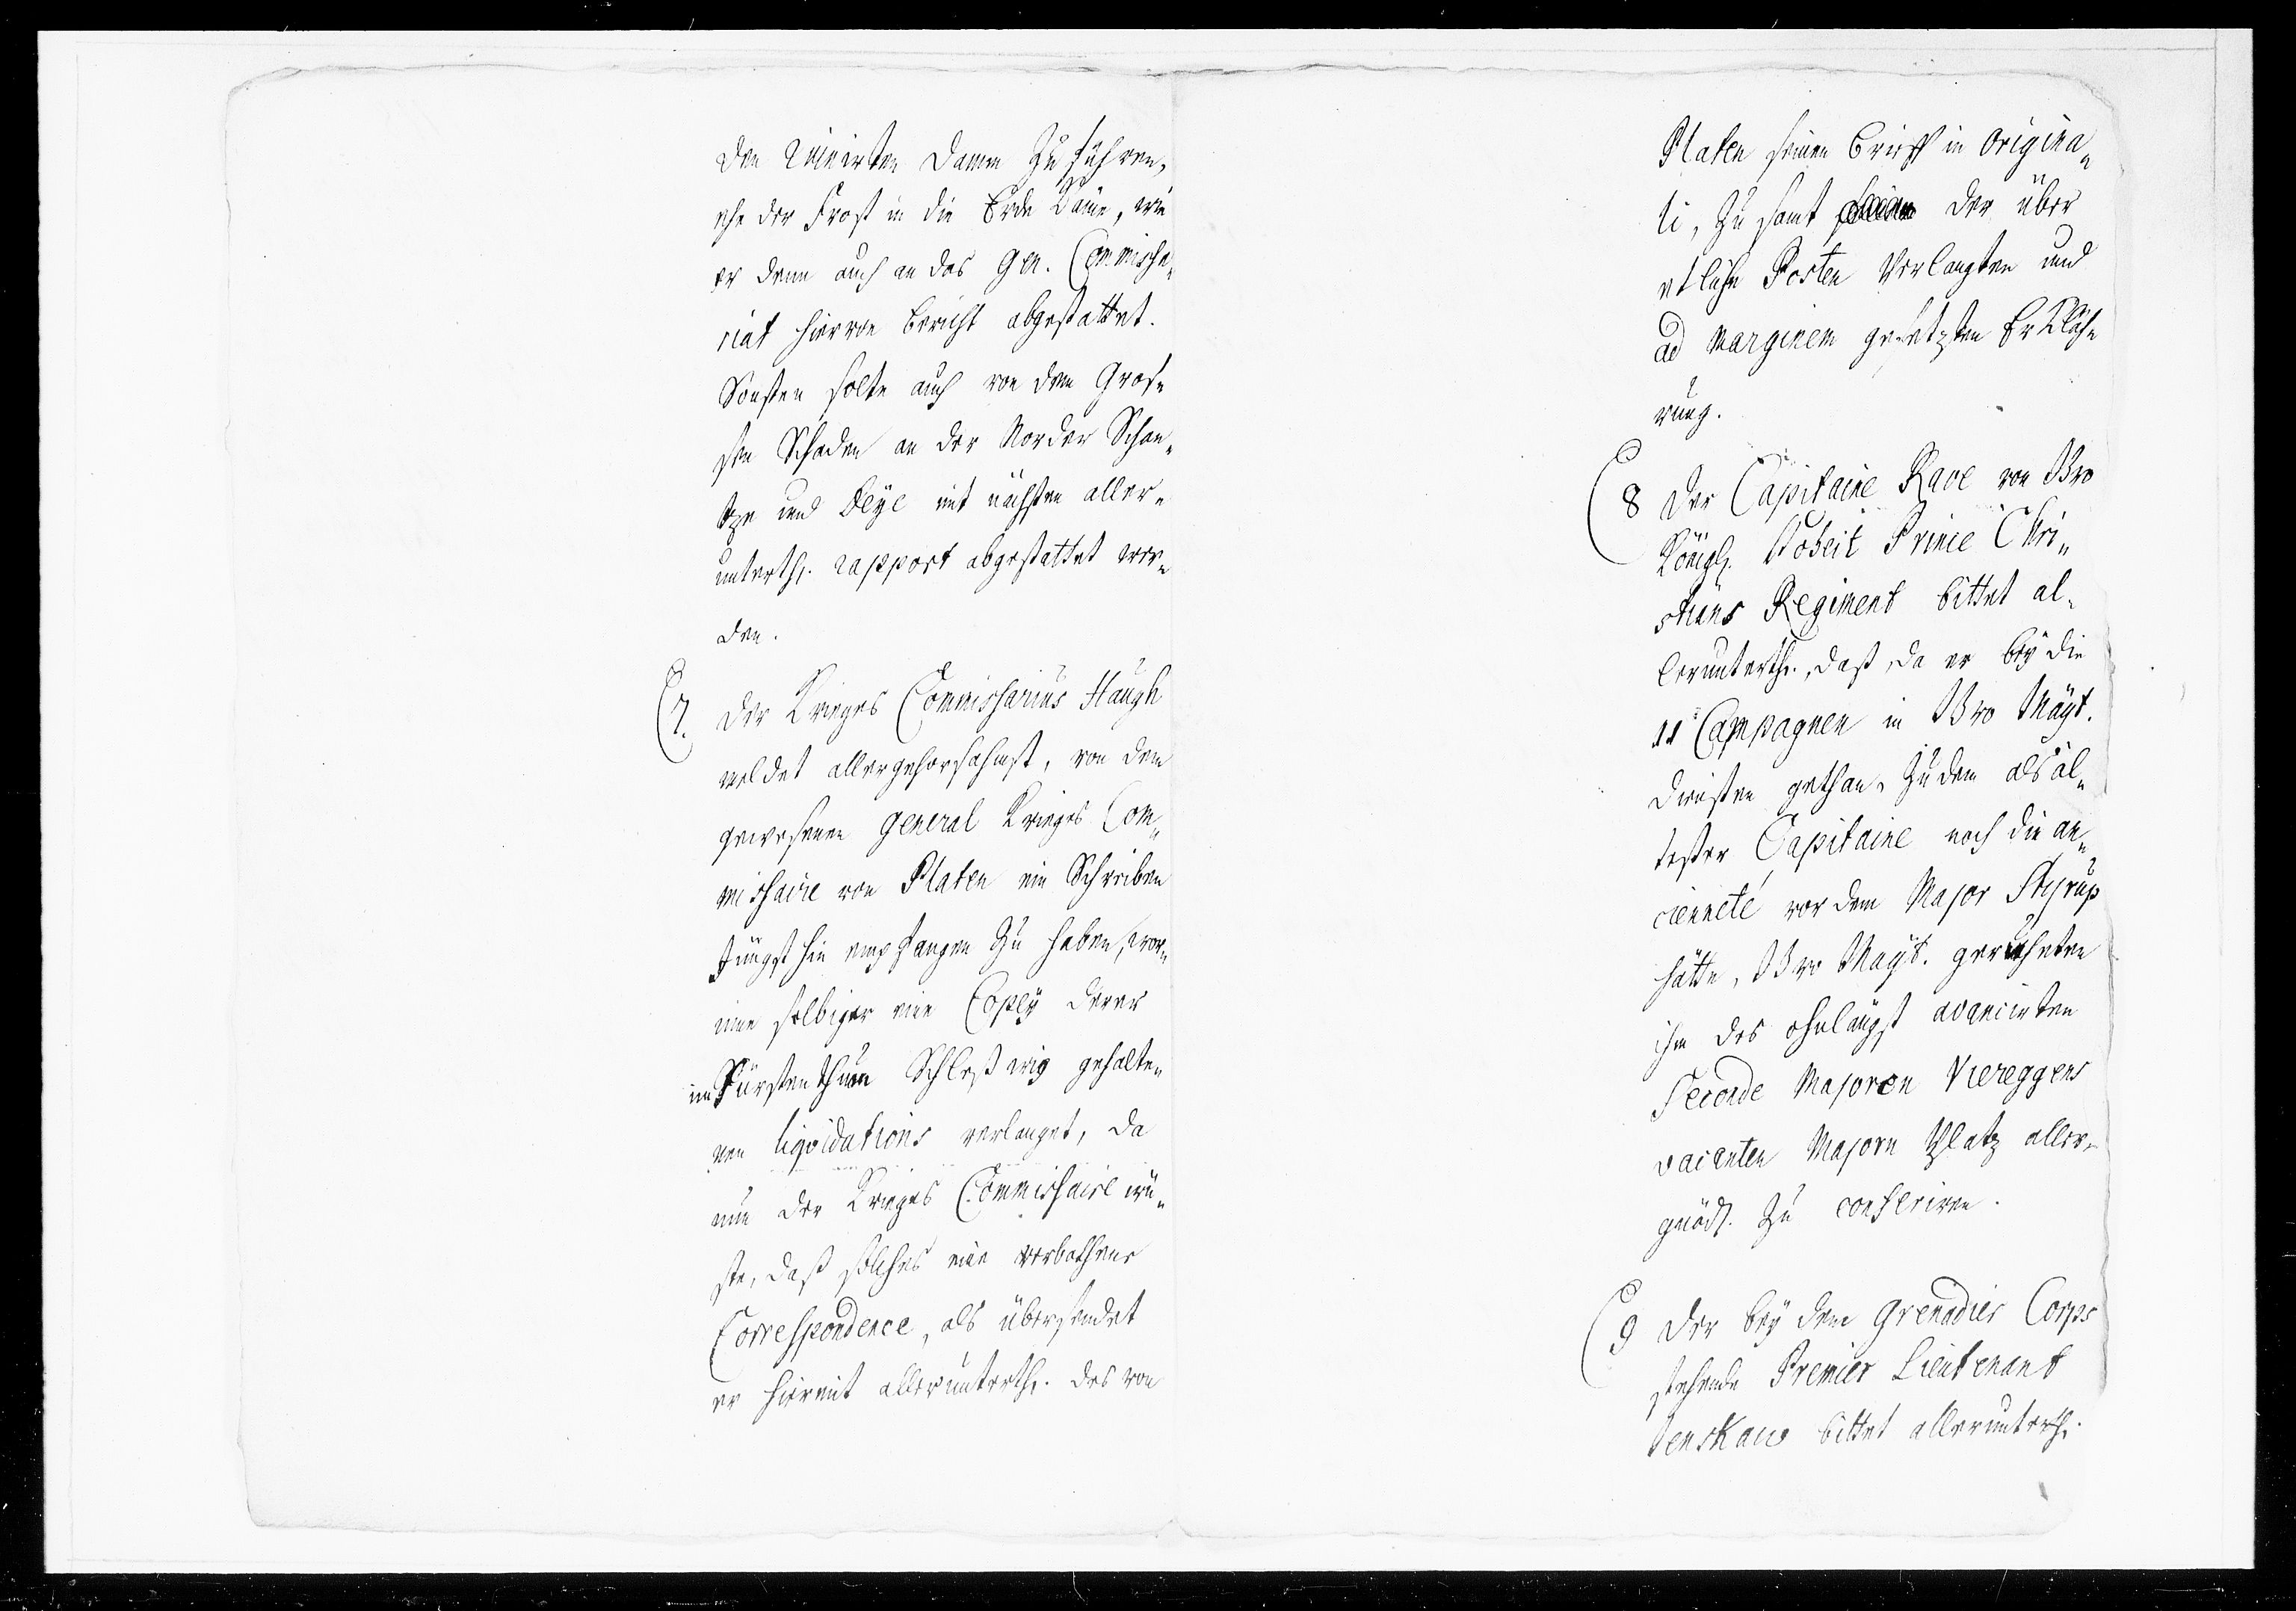 den ruinirten Damm zu führen,
ehe der Frost in die Erde käme, wie
er denn auch an das Gen. Commissa„
riat hievon bericht abgestattet.
Sonsten solte auch von dem Gros„
sen Schaden an der Norder Schan„
tze und Deÿe mit nächsten aller„
unterth. rapport abgestattet wer„
den.
7. Der Krieges Commissarius Haugh
meldet allergehorsahmst, von dem
gewesenen General Krieges Com„
missaire von Platen ein Schreiben
Jüngst hin empfangen zu haben, wor„
inne selbiger eine Copeÿ derer
im Fürstenthum Schleßwig gehalte„
nen liquidations verlanget, da
nun der Krieges Commissaire wü„
ste, daß solches eine verbothene
Correspondence, als übersendet
er hiemit allerunterth. des von
Platen seinen Brieff in origina„
li, zu samt der über
etliche Posten verlangten und
ad marginem gesetzten Erkläh„
rung.
8 Der Capitaine Rave von Ihro
Königl. Hoheit Prince Chri„
stians Regiment bittet al„
lerunterth., daß, da er beÿ die
11 Campagnen in Ihro Maÿt.
Diensten gethan, zudem als äl„
tester Capitaine noch die an„
cienneté vor dem Major Styrup
hätte, Ihro Maÿt. geruheten
ihm des ohnlängst avancirten
Seconde Majoren Viereggens
vacanten Majorn Platz aller„
gnädt. zu conferiren.
9 Der beÿ dem Grenadier Corps
stehende Premier Lieutenant
Jenskau bittet allerunterth.